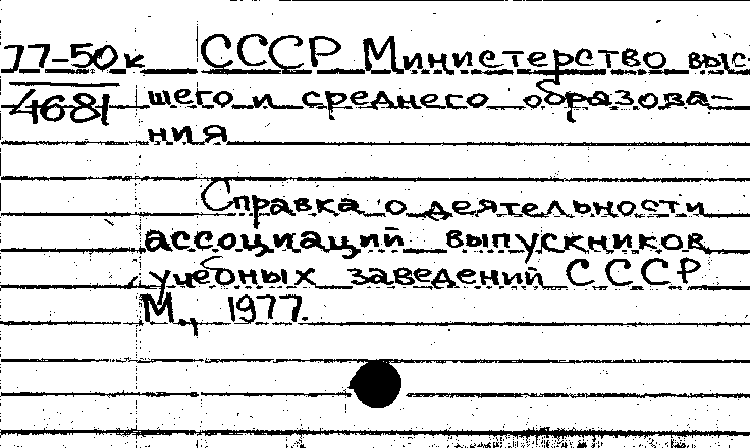 77-50к СССР Министерство выс-
4681 шего и среднего образова-
ния
Справка о деятельности
ассоциаций выпускников
учебных заведений СССР
М., 1977.